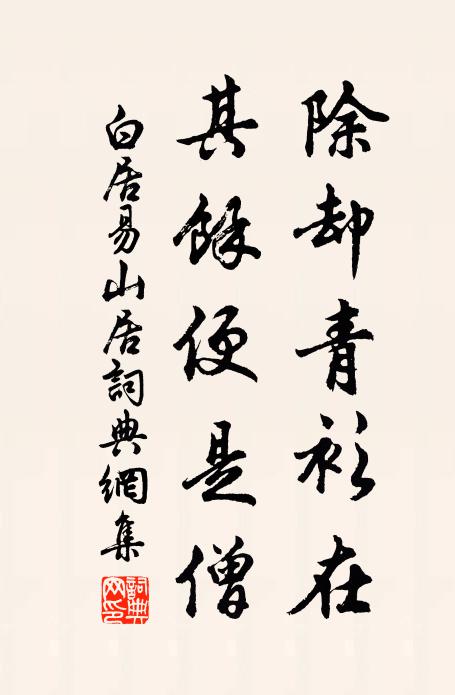 除却青衫在
其餘便是僧
白居易山居詞典網集
詞典网印